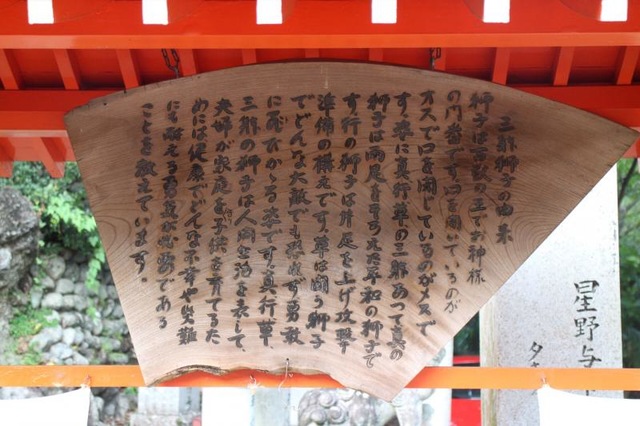 三態獅子の由来
獅子は百獣の王でお神様
の門番です。口を開いているのが
オスで口を閉じているのがメスで
す。姿に真行草の三態あって真の
獅子は両足をすえた平和の獅子で
す。行の獅子は片足を上げ攻撃
準備の構えです。草は闘う獅子
でどんな大敵でも恐れず勇敢
に飛びかゝる姿です。真行草、
三態の獅子は人間生活を表して、
夫婦が家庭を子供を育てるた
めには健康でどんな不幸や災難
にも耐える勇気が必要である
ことを教えています。
星野与
夕